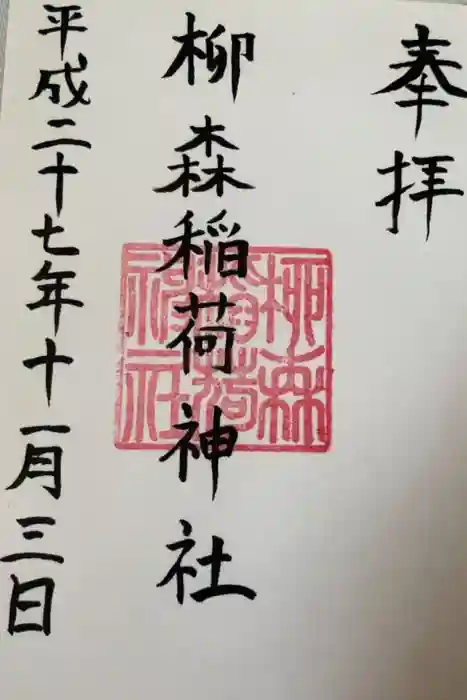 奉拝
柳森稲荷神社
柳森稲荷神社
平成二十七年十一月三日